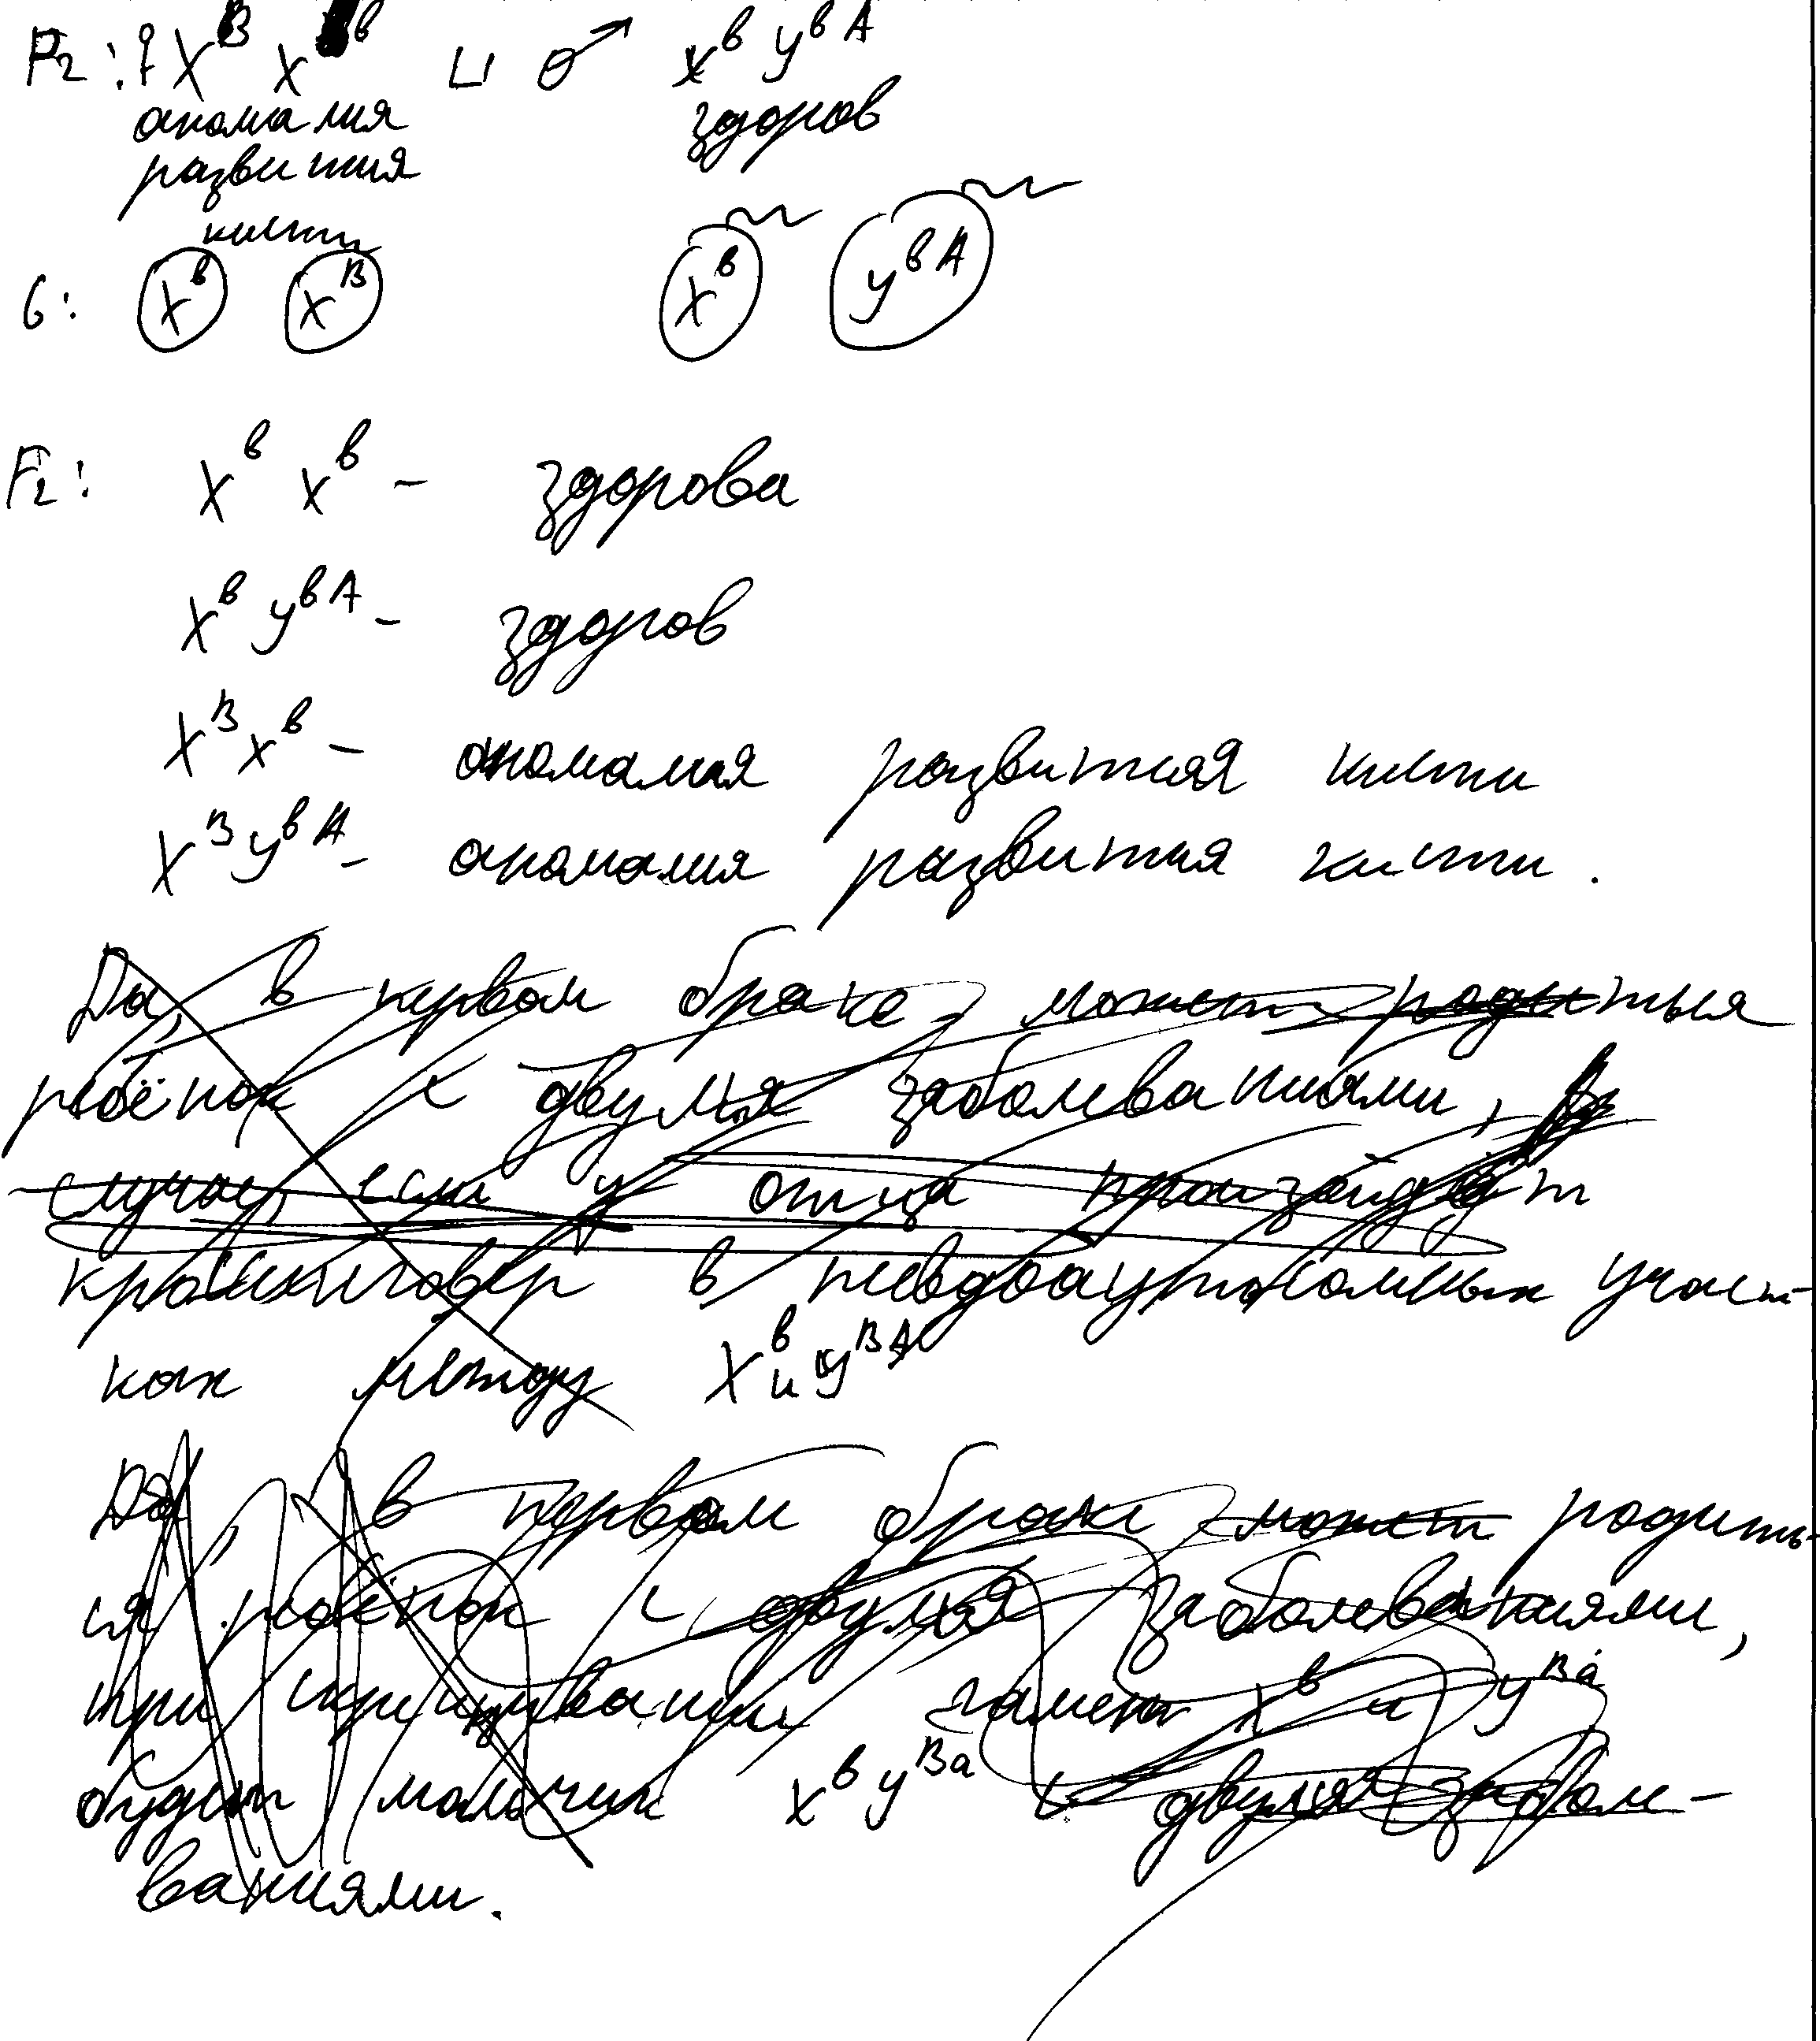 P₂: ♀ X^B X^b и ♂ X^b Y^bA
аномалия здоров
развития
кисти
G: X^b X^B X^b Y^bA
F₂: X^b X^b – здорова
X^b Y^bA – здоров
X^B X^b – аномалия развития кисти
X^B Y^bA – аномалия развития кисти.
Да, в первом браке может родиться
ребёнок с двумя заболеваниями, в
случае, если у отца произойдёт
кроссинговер в псевдоаутосомных участ-
ках между X^b и Y^BA
Да, в первом браке может родить-
ся ребёнок с двумя заболеваниями,
при скрещивании гамет X^b и Y^Ba
будет мальчик X^b Y^Ba с двумя забол-
ваниями.